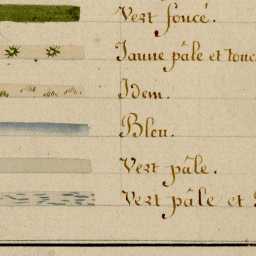 Vert foncé.
Jaune pâle et touc
Idem.
Bleu.
Vert pâle.
Vert pâle et